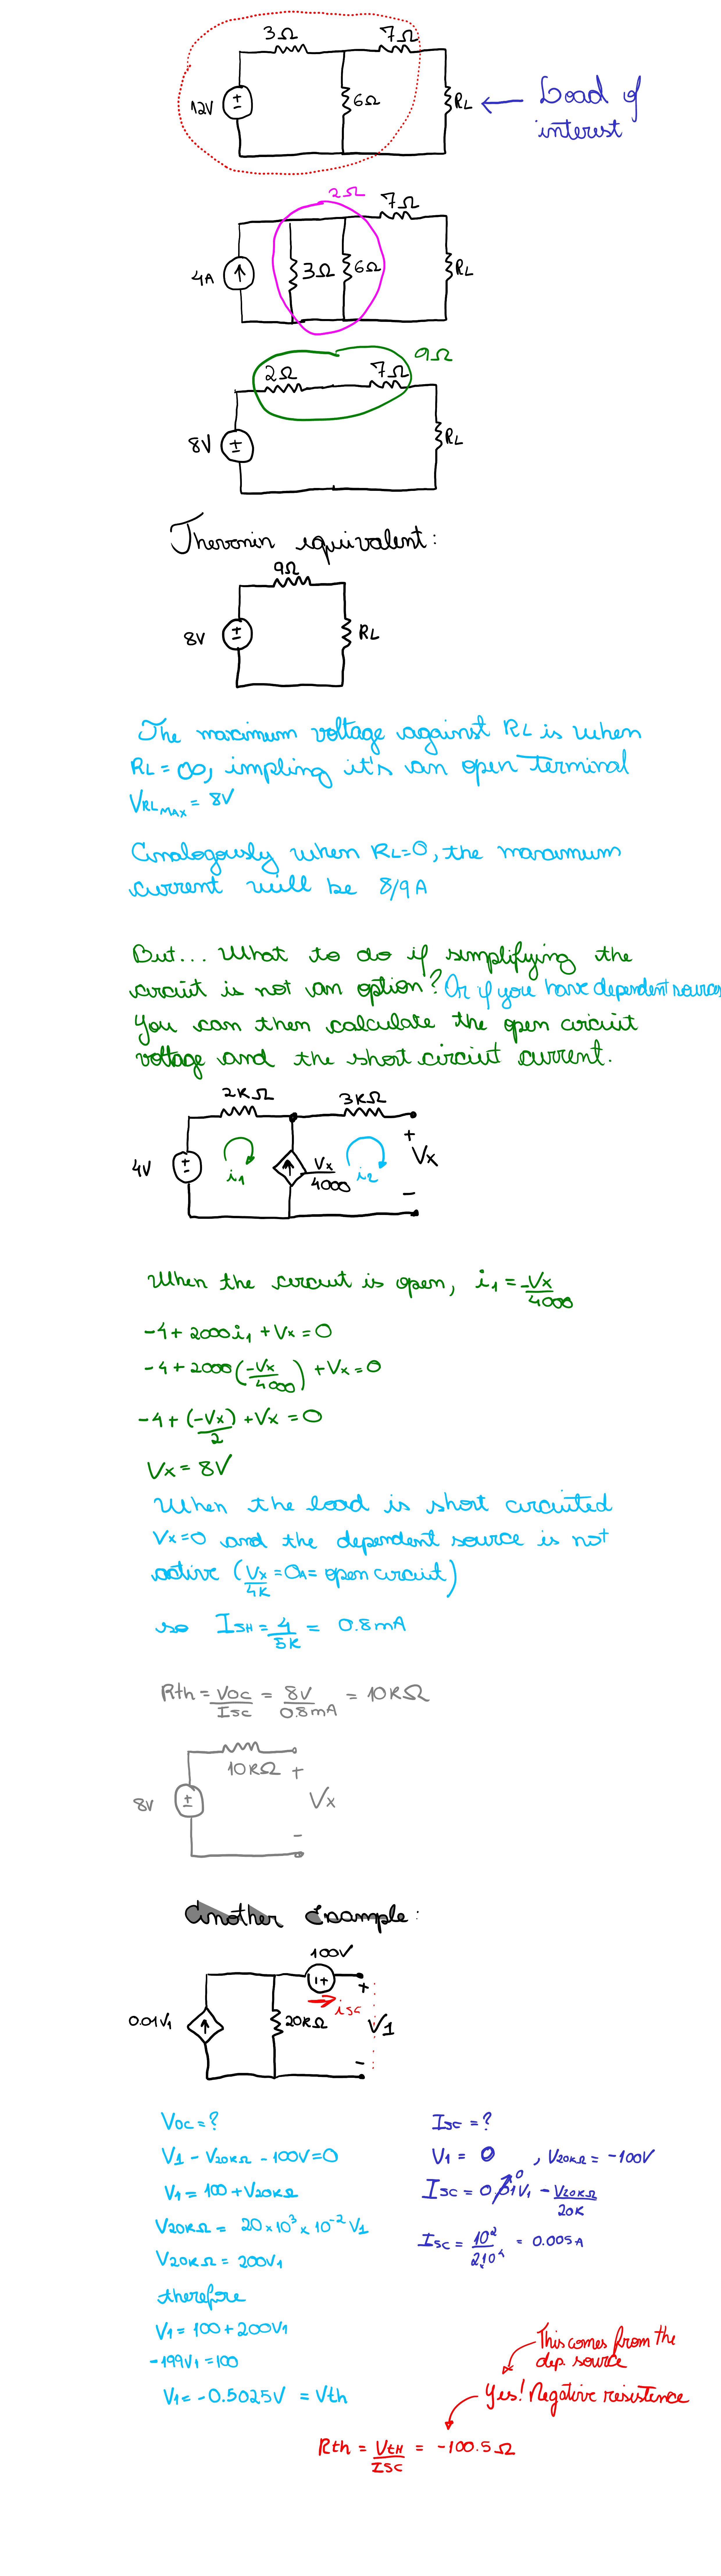 3Ω
7Ω
12V
6Ω
RL
Load of
interest
2Ω
7Ω
4A
3Ω
6Ω
RL
9Ω
2Ω
7Ω
8V
RL
Thevenin equivalent:
9Ω
8V
RL
The maximum voltage against RL is when
RL = ∞, impling it's an open terminal
VRLMAX = 8V
Analogously when RL=0, the maximum
current will be 8/9 A
But... What to do if simplifying the
circuit is not an option? Or if you have dependent sources
You can then calculate the open circuit
voltage and the short circuit current.
2KΩ
3KΩ
4V
i1
Vx/4000
i2
+
Vx
−
When the circuit is open, i1 = -Vx/4000
-4 + 2000i1 + Vx = 0
-4 + 2000(-Vx/4000) + Vx = 0
-4 + (-Vx)/2 + Vx = 0
Vx = 8V
When the load is short circuited
Vx=0 and the dependent source is not
active (Vx/4K = 0A = open circuit)
so ISH = 4/5K = 0.8mA
Rth = VOC/ISC = 8V/0.8mA = 10KΩ
10KΩ
+
8V
Vx
−
Another Example:
100V
+
isc
0.01V1
20KΩ
V1
−
Voc = ?
V1 - V20KΩ - 100V = 0
V1 = 100 + V20KΩ
V20KΩ = 20×10³ × 10⁻² V1
V20KΩ = 200V1
therefore
V1 = 100 + 200V1
-199V1 = 100
V1 = -0.5025V = Vth
Isc = ?
V1 = 0 , V20KΩ = -100V
Isc = 0.01V1 0 - V20KΩ/20K
Isc = 10²/2.10⁴ = 0.005A
This comes from the
dep. source
Yes! Negative resistence
Rth = VtH/ISC = -100.5Ω